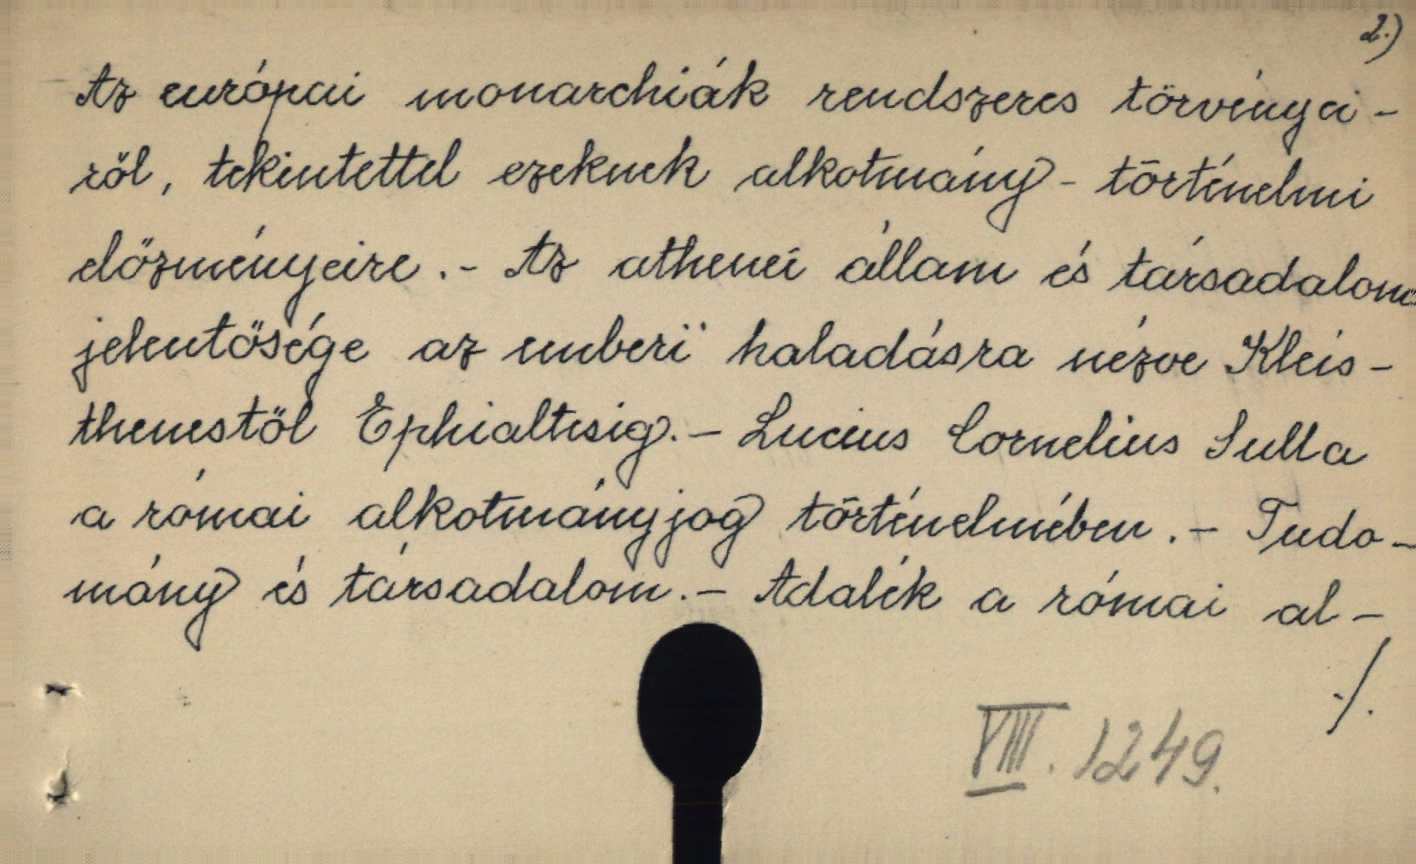 2.)
Az európai monarchiák rendszeres törvényei-
ről, tekintettel ezeknek alkotmány-történelmi
előzményeire.- Az athenei állam és társadalom
jelentősége az emberi haladásra nézve Kleis-
thenestől Ephialtesig.- Lucius Cornelius Sulla
a római alkotmányjog történelmében.- Tudo-
mány és társadalom.- Adalék a római al-
./.
VIII. 1249.